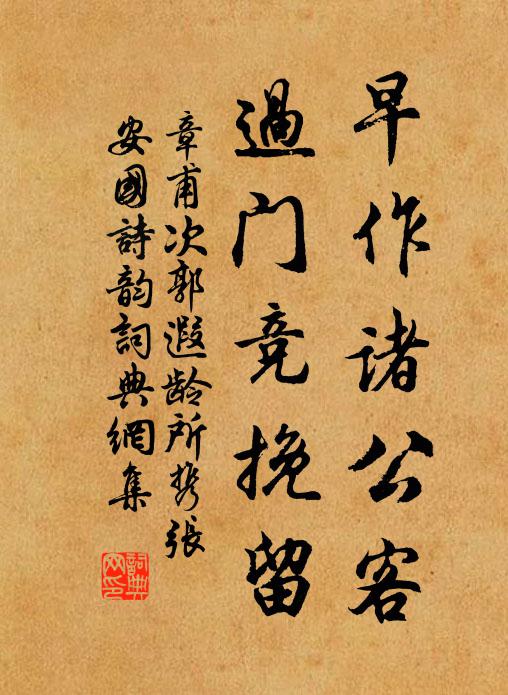 早作诸公客
過门竞挽留
章甫次郭遐龄所携張
安國詩韵詞典網集
詞典
网印